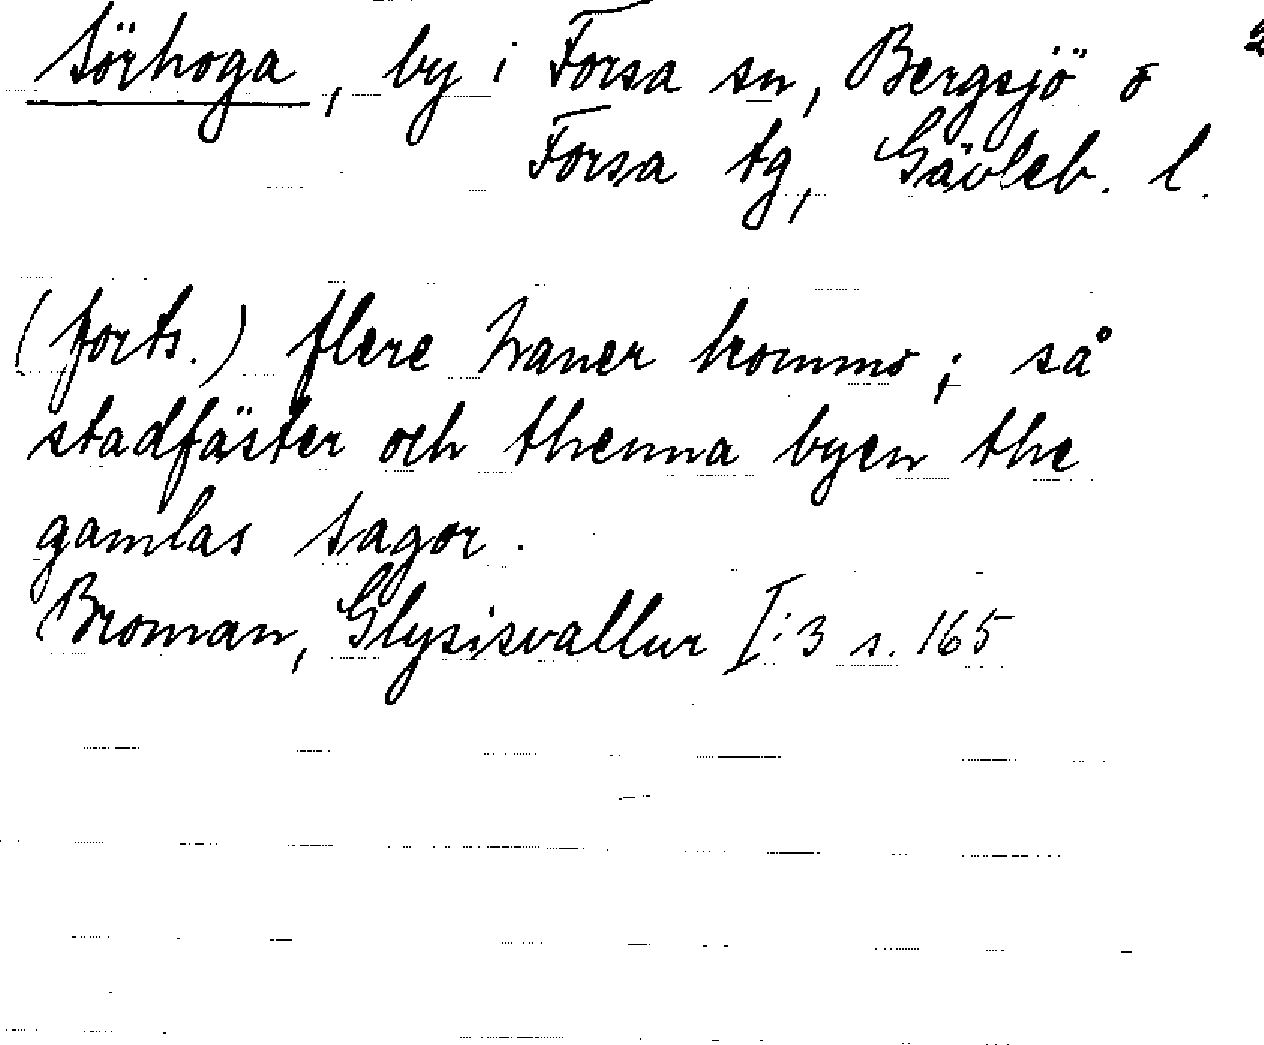 Sörhoga, by i Forsa sn, Bergsjö o 2
Forsa tg, Gävleb. l.
(forts.) flere haner kommo; så
stadfäster och thenna byen the
gamlas sagor.
Broman, Glysisvallur I:3 s. 165